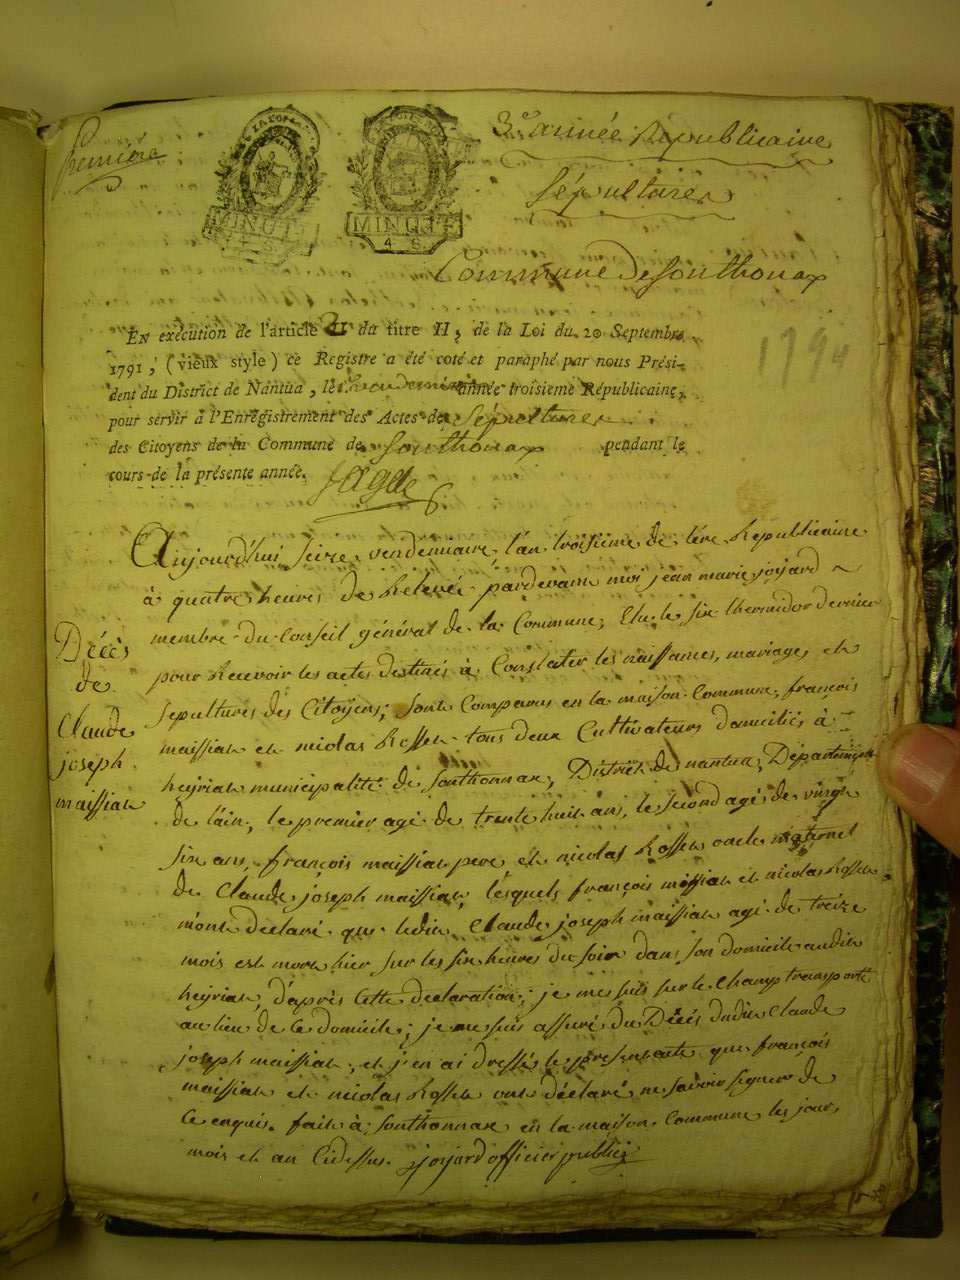 Première
3e année Républicaine
Sépultures
MINUTE
4 S
MINUTE
4 S
Commune de Sonthonax
1794
EN exécution de l'article II du titre II, de la Loi du 20 Septembre
1791, (vieux style) ce Registre a été coté et paraphé par nous Prési-
dent du District de Nantua, le année troisieme Républicaine,
pour servir à l'Enregistrement des Actes de Sépultures
des Citoyens de la Commune de Sonthonax pendant le
cours de la présente année.
Aujourd'hui seize vendemiaire l'an troisieme de l'ére Republicaine
à quatre heures de Relevée pardevant moi jean marie joyard
membre du Conseil général de la Commune, Elu le six thermidor dernier
pour Recevoir les actes destinés à Constater les naissances, mariages et
sepultures des Citoyens; sont Comparus en la maison Commune, françois
maissiat et nicolas Rosset tous deux Cultivateurs domiciliés à
heyriat municipalité de Sonthonnax, District de nantua, Département
de l'ain, le premier agé de trente huit ans, le second agé de vingt
six ans, françois maissiat pere et nicolas Rosset oncle maternel
de Claude joseph maissiat, lesquels françois maissiat et nicolas Rosset
m'ont declaré que ledit Claude joseph maissiat agé de treize
mois est mort hier sur les six heures du soir dans son domicile audit
heyriat, d'après cette declaration; je me suis sur le Champ transporté
au lieu de ce domicile; je me suis assuré du Décés dudit Claude
joseph maissiat, et j'en ai dressé le present acte que françois
maissiat et nicolas Rosset ont déclaré ne savoir signer de
ce enquis. fait à Sonthonnax en la maison Commune les jour,
mois et an Cidessus. joyard officier public
Décès
de
Claude
joseph
maissiat